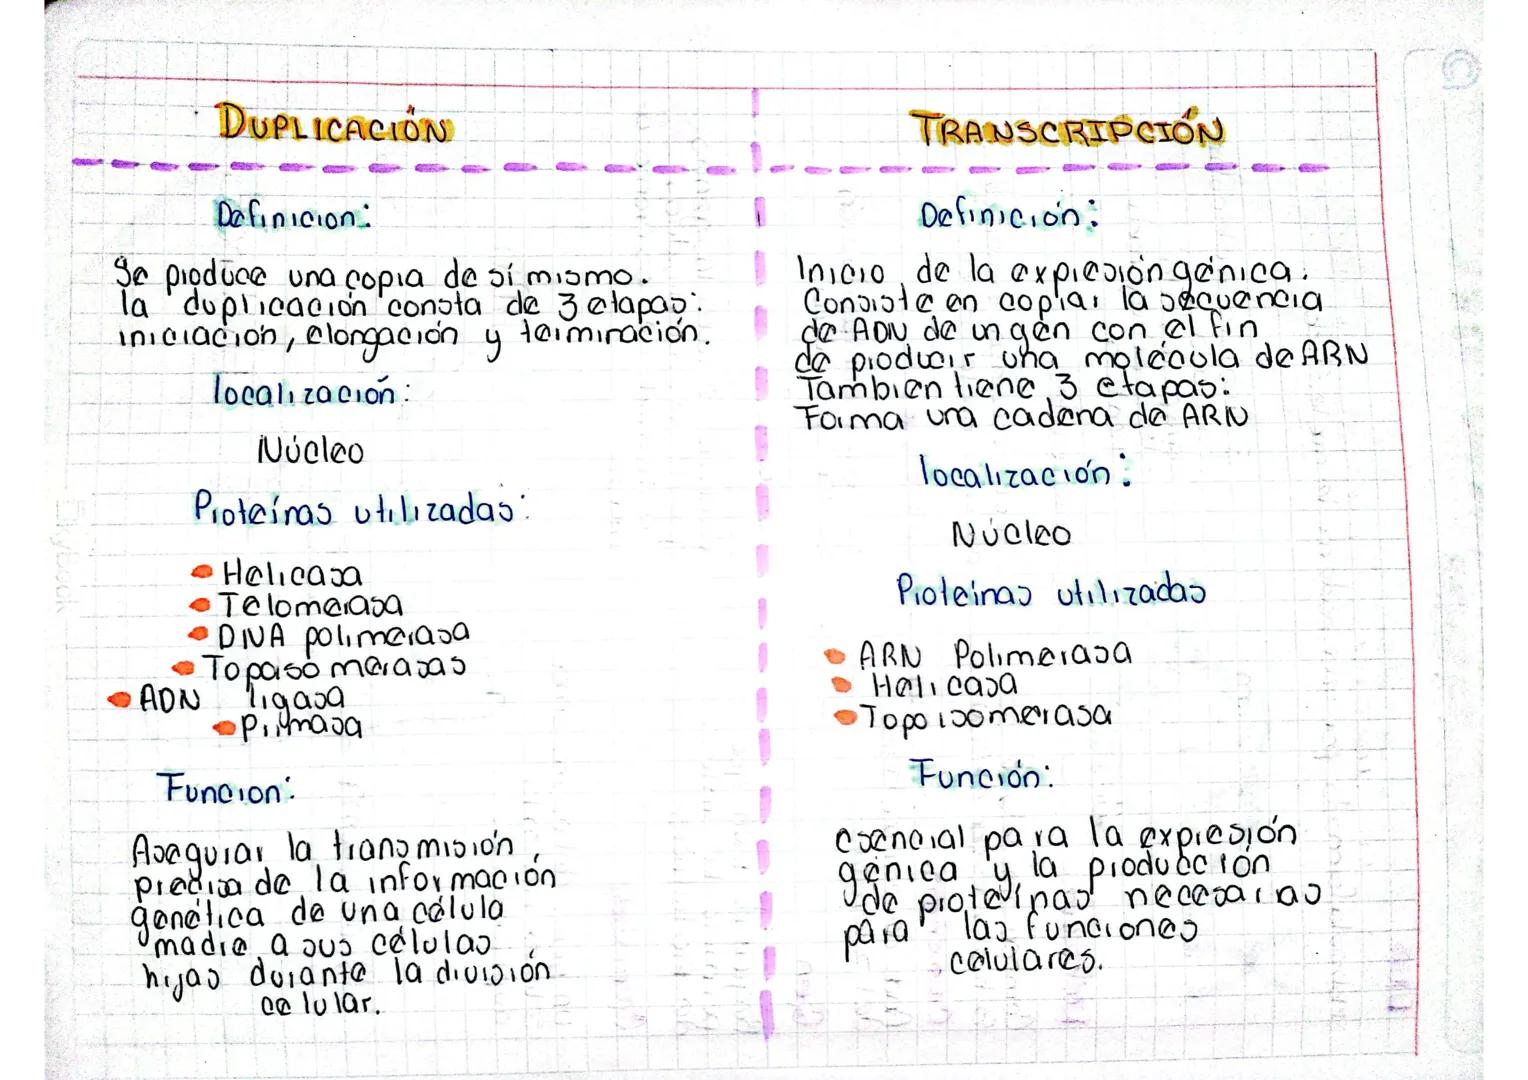 DUPLICACIÓN
Definicion:
Se produce una copia de sí mismo.
la duplicación consta de 3 etapas:
iniciación, elongación y terminación.
localización:
Núcleo
Proteínas utilizadas:
Helicasa
Telomerasa
DNA polimerasa
Topoiso merasas
ADN ligasa
Primasa
Funcion:
Asegurar la transmisión,
precisa de la información
genética de una célula
madre a sus células
hijas durante la división
ce lular.
TRANSCRIPCIÓN
Definición:
Inicio de la expresión génica.
Consiste en copiar la secuencia
de ADN de un gen con el fin
de producir una molécula de ARN
Tambien tiene 3 etapas:
Forma una cadena de ARN
localización:
Núcleo
Proteinas utilizadas
ARN Polimerasa
Helicasa
Topoisomerasa
Función:
esencial para la expresión
génica y la producción
de proteínas necesarias
para las funciones
celulares.